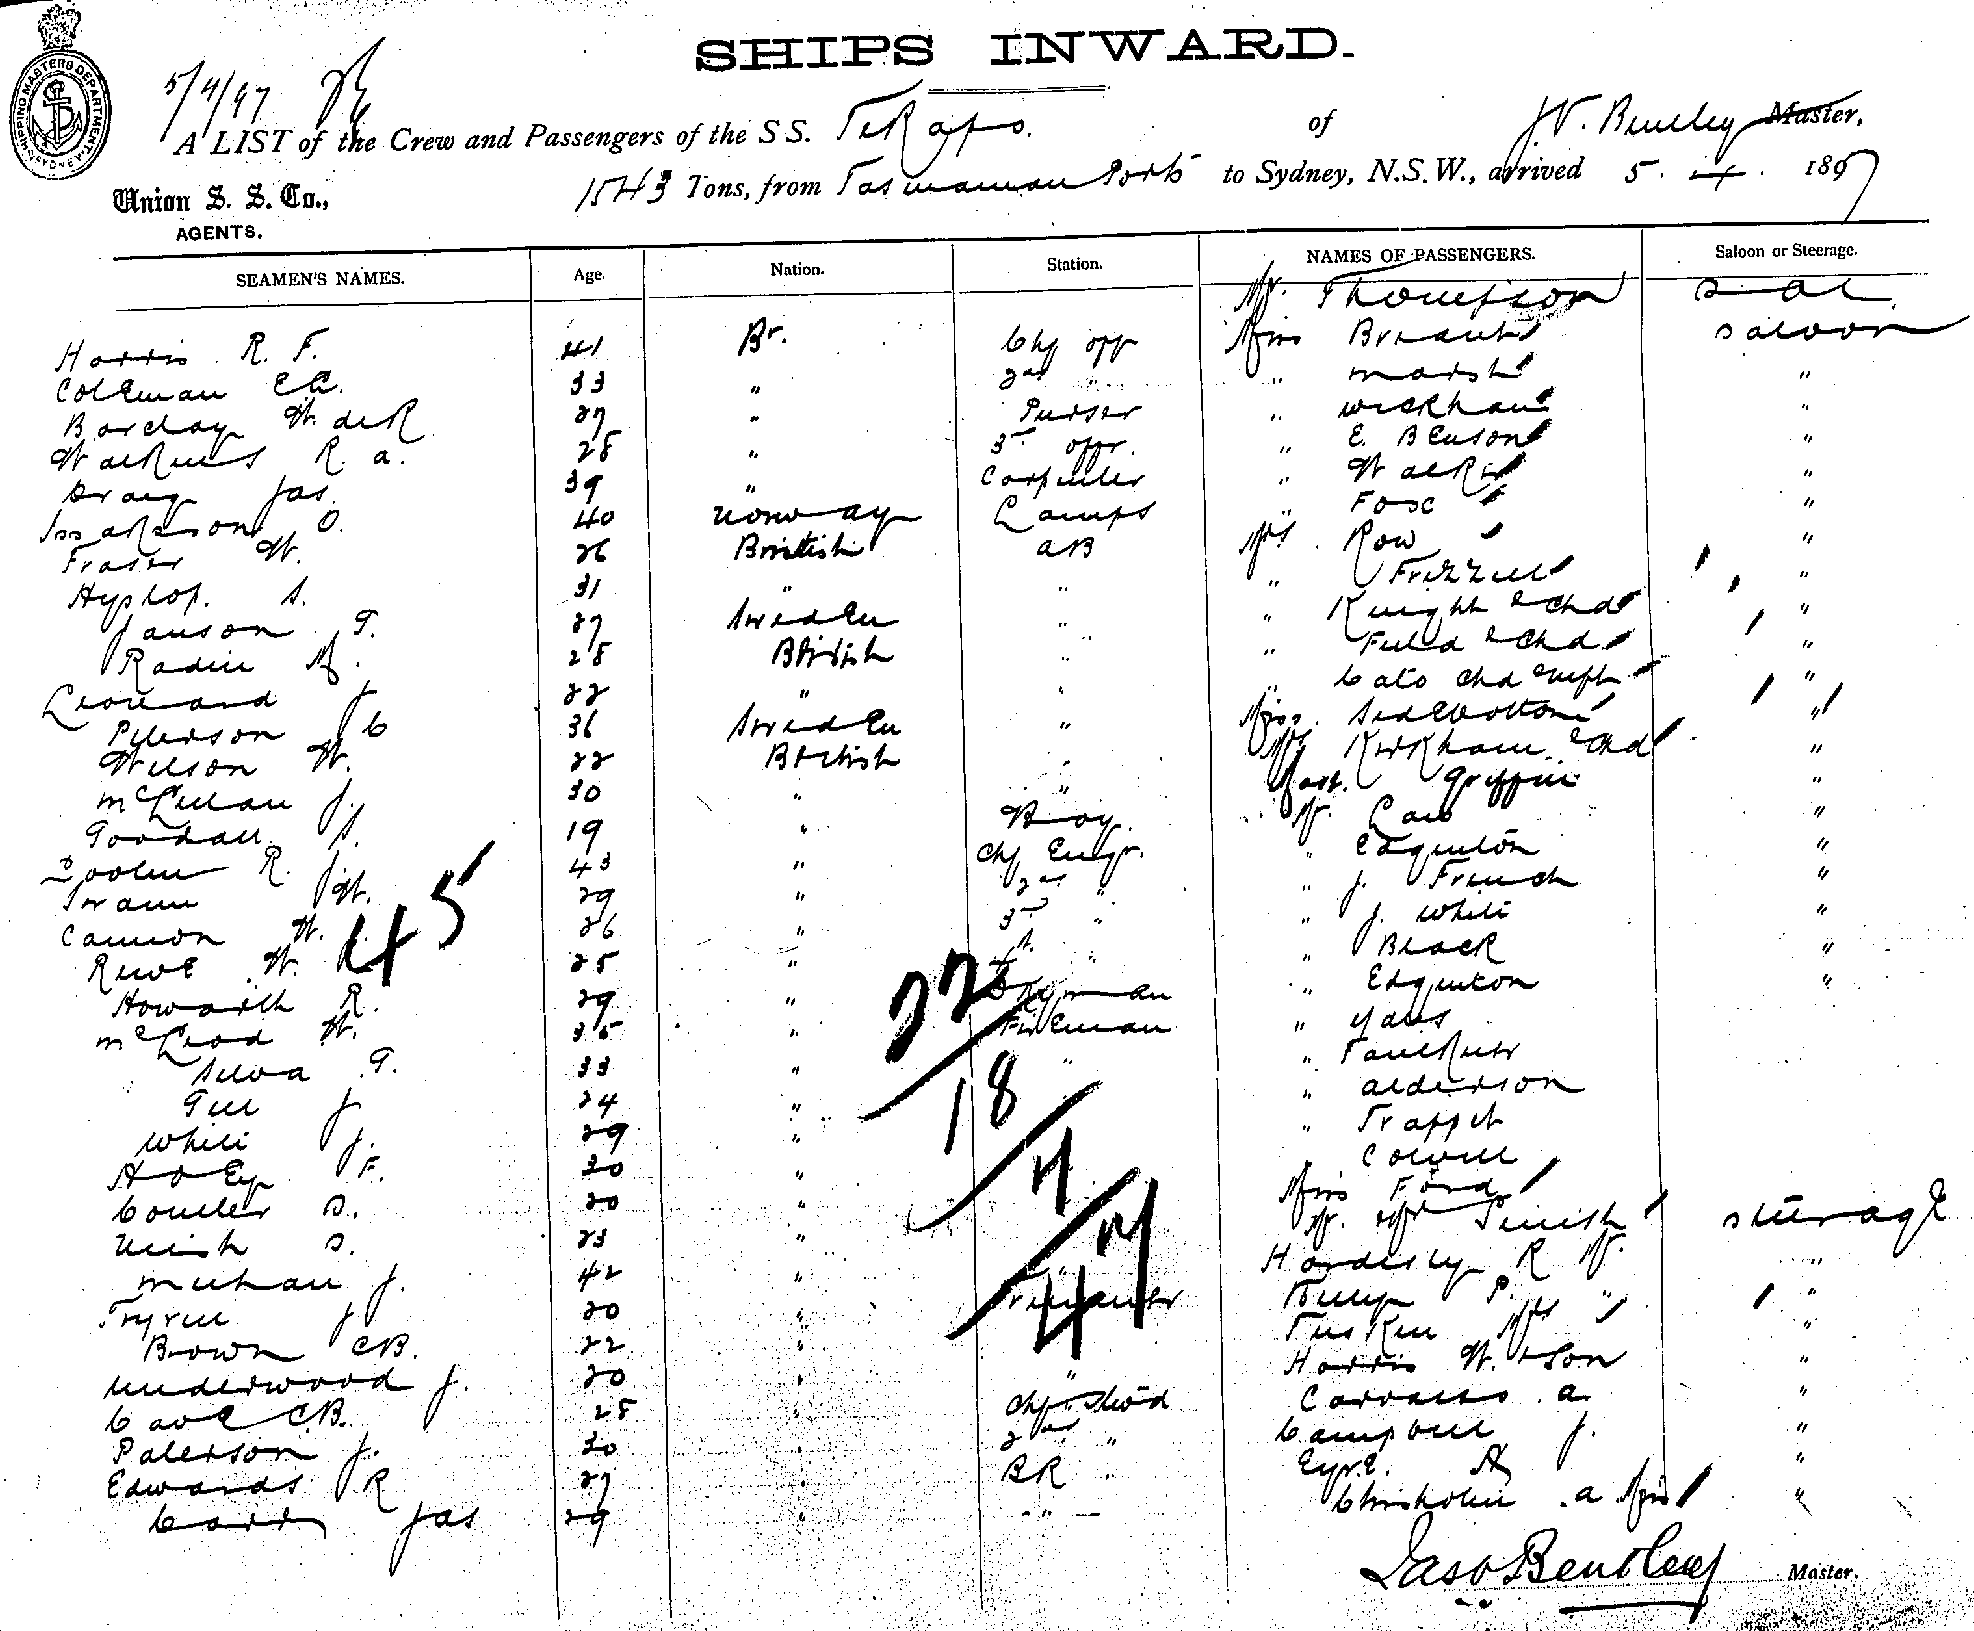 SHIPS INWARD.
5/4/97
A LIST of the Crew and Passengers of the S S. TeKapo. of J.V. Bentley Master,
Union S. S. Co., 1543 Tons, from Tasmanian Ports to Sydney, N.S.W., arrived 5. 4. 1897
AGENTS.
SEAMEN'S NAMES. Age. Nation. Station. NAMES OF PASSENGERS. Saloon or Steerage.
Mr. Thompson Sal
Harris R. F. 41 Br. Chf off Miss Bryant Saloon
Coleman 33 " 2nd " " Marsh "
Barclay W deR 27 " Purser " Wickham "
Watkins R a. 28 " 3rd offr. " E. Benson "
Craig Jas. 39 " Carpenter " Walker "
Isaakson O. 40 Norway Lamps " Fox "
Fraser W. 26 British aB Mrs Row "
Hyslop. S. 31 " " " Frizzell "
Janson T. 27 Sweden " " Knight & Chd "
28 British " " Field & Chd "
J 22 " " " Cato Chd & Inft "
Peterson C 36 Sweden " Miss Sidebottom "
Wilson W. 22 British " Mrs Kirkham & Chd "
McLellan J. 30 " " Mast. Griffin "
Goodall S. 19 " Boy. Mr. Law "
R. J. 43 " Chf Engr. " Edginton "
W. 29 " 2nd " " J. French "
Cannon W. 26 " 3rd " " J. White "
Rowe W. 25 " 4 " " Black "
Howarth R. 29 " " Edginton "
McLeod W. 35 " Fireman " Yates
Silva T. 33 " " " Faulkner
Gill J 24 " " Alderson
White J. 29 " " Trappit
F. 30 " " Colvill
Coulter D. 20 " Miss Ford
D. 23 " Mr. Mrs Steerage
Meehan J. 42 " Hardesty R Mr. "
J 20 " Trimmer P. " "
Brown CB. 22 " Mrs "
Underwood J. 20 " " Harris W. & Son "
Cave CB. 28 " Chf Stw'd a. "
Paterson J. 30 " 2nd " Campbell J. "
Edwards R 27 " BR " Eyre. "
Carr Jas 29 " " Chisholm a Miss "
45
22
18
4
44
Jas V Bentley Master.